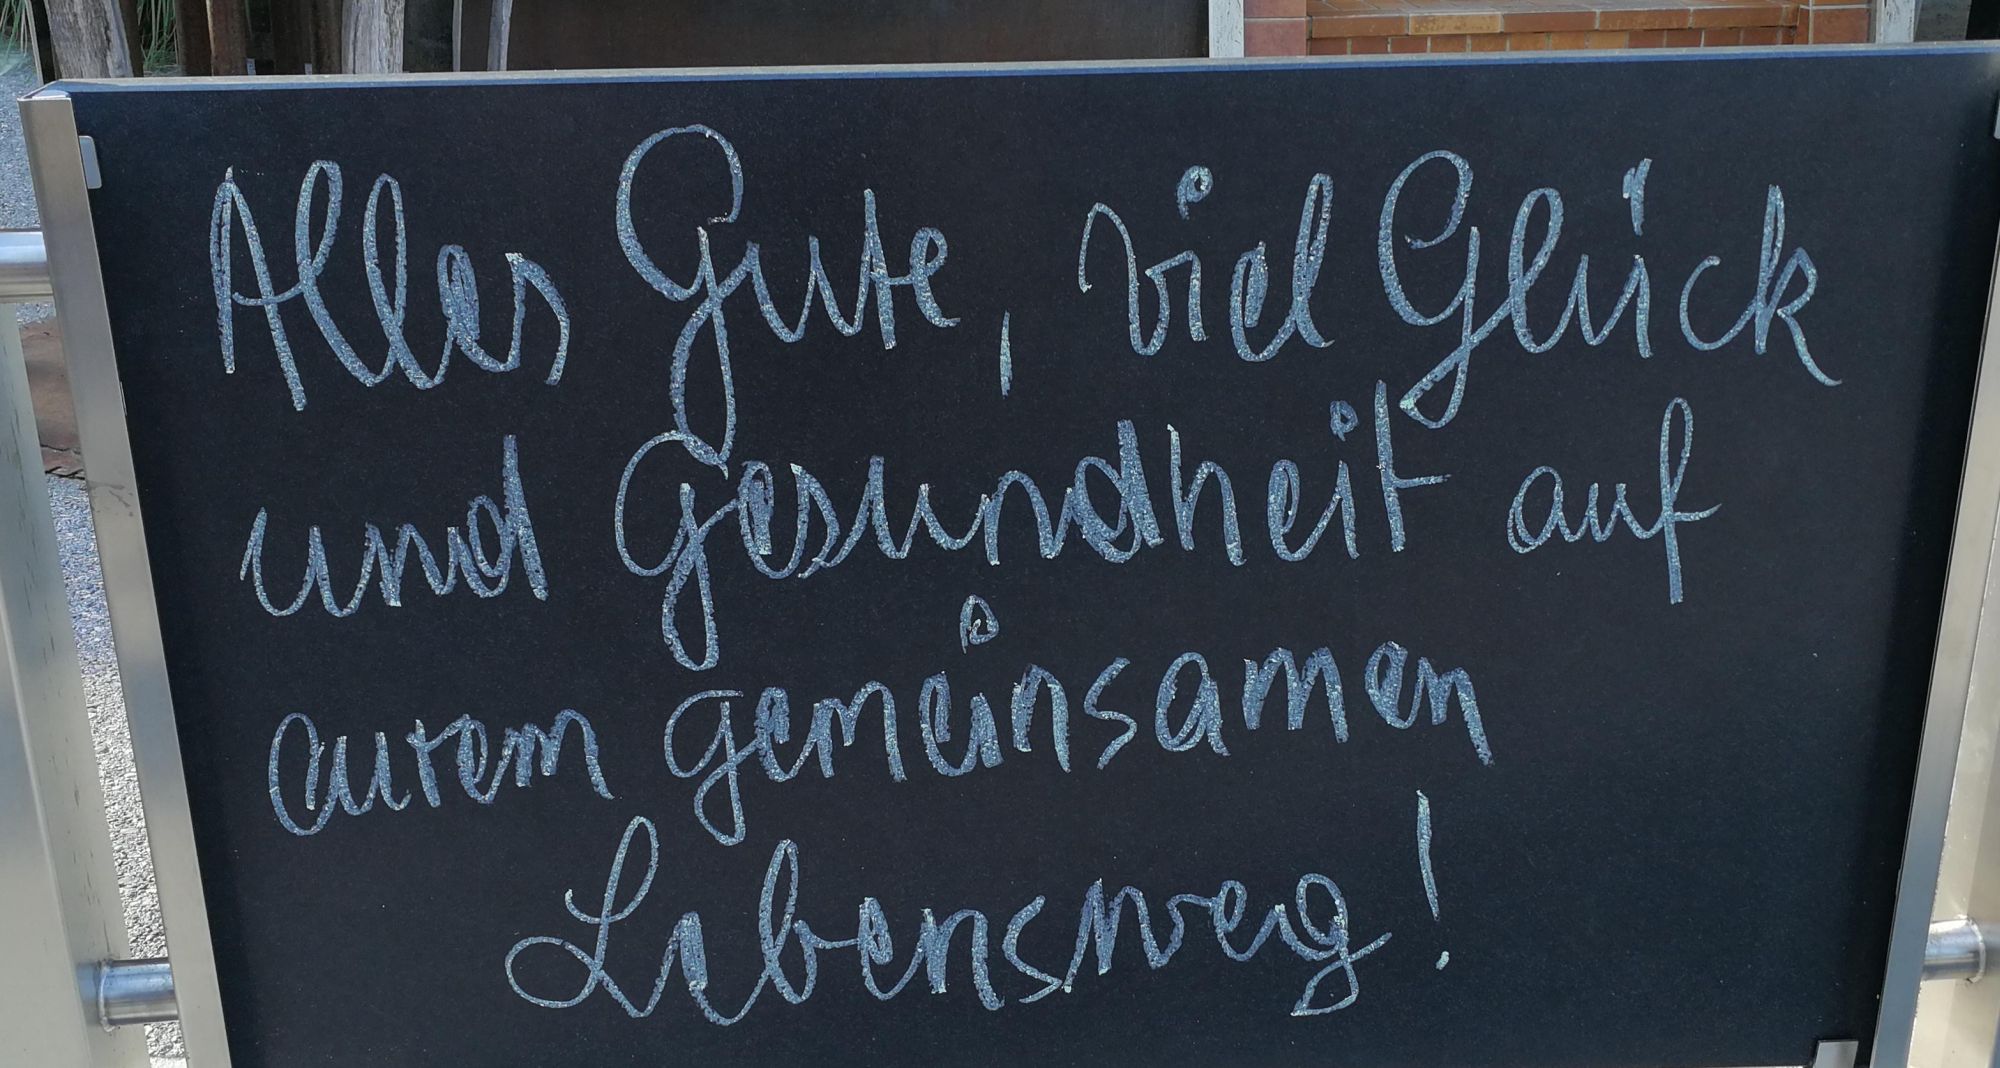 Alles Gute, viel Glück
und Gesundheit auf
eurem gemeinsamen
Lebensweg!